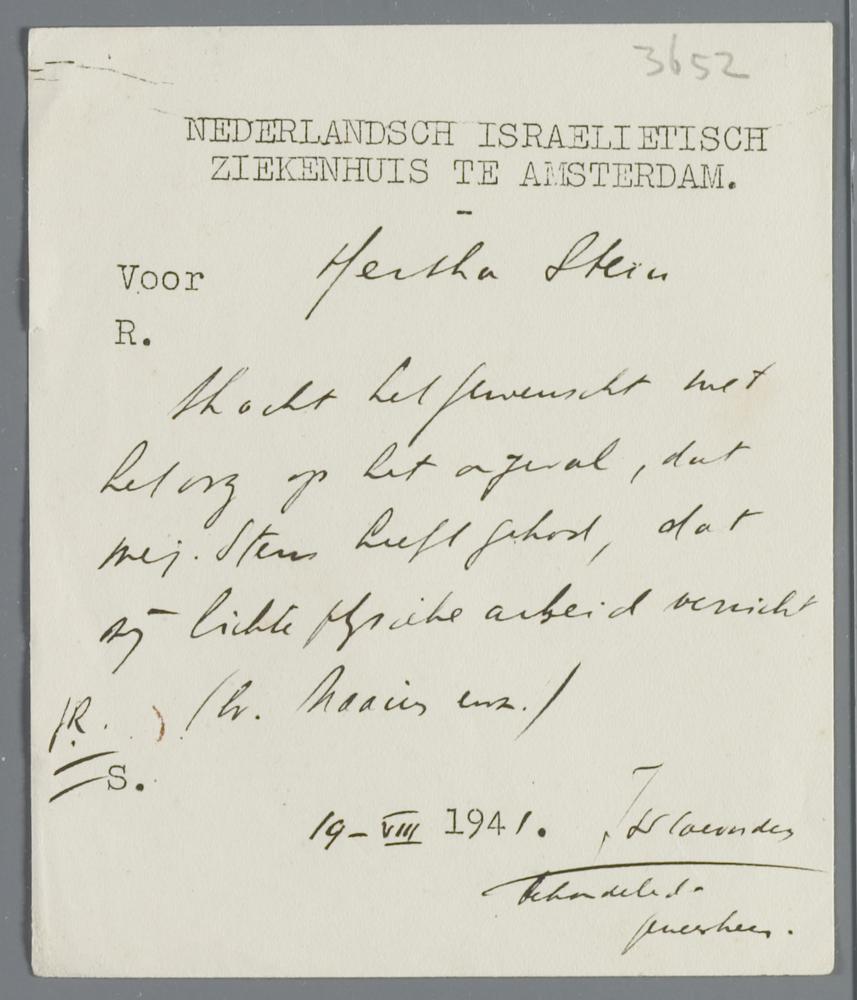 3652
NEDERLANDSCH ISRAELIETISCH
ZIEKENHUIS TE AMSTERDAM.
-
Voor Hertha Stein
R.
Acht het gewenscht met
het oog op het ongeval, dat
mej. Stein heeft gehad, dat
zij lichte physieke arbeid verricht
(bv. Naaien enz.)
R.
S.
19-VIII 1941.
behandelend-
geneesheer.